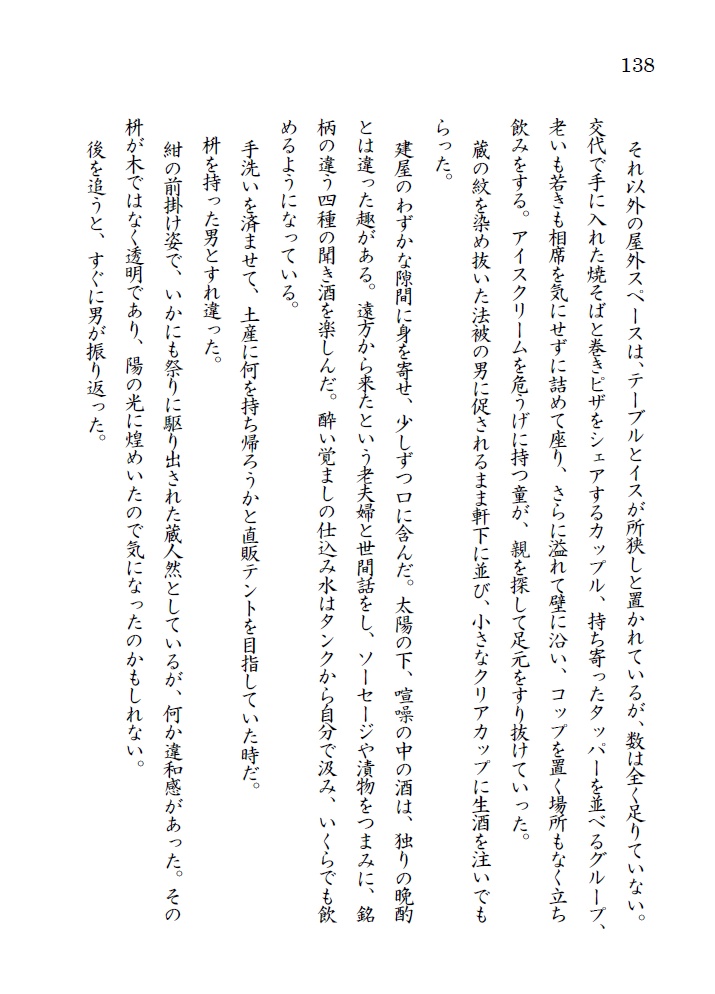 138
それ以外の屋外スペースは、テーブルとイスが所狭しと置かれているが、数は全く足りていない。
交代で手に入れた焼そばと巻きピザをシェアするカップル、持ち寄ったタッパーを並べるグループ、
老いも若きも相席を気にせずに詰めて座り、さらに溢れて壁に沿い、コップを置く場所もなく立ち
飲みをする。アイスクリームを危うげに持つ童が、親を探して足元をすり抜けていった。
蔵の紋を染め抜いた法被の男に促されるまま軒下に並び、小さなクリアカップに生酒を注いでも
らった。
建屋のわずかな隙間に身を寄せ、少しずつ口に含んだ。太陽の下、喧噪の中の酒は、独りの晩酌
とは違った趣がある。遠方から来たという老夫婦と世間話をし、ソーセージや漬物をつまみに、銘
柄の違う四種の聞き酒を楽しんだ。酔い覚ましの仕込み水はタンクから自分で汲み、いくらでも飲
めるようになっている。
手洗いを済ませて、土産に何を持ち帰ろうかと直販テントを目指していた時だ。
枡を持った男とすれ違った。
紺の前掛け姿で、いかにも祭りに駆り出された蔵人然としているが、何か違和感があった。その
枡が木ではなく透明であり、陽の光に煌めいたので気になったのかもしれない。
後を追うと、すぐに男が振り返った。